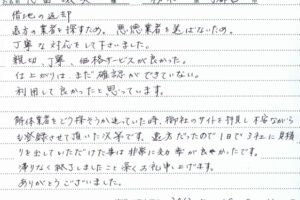 借地の返却
遠方の業者を探すため、悪徳業者を選ばないため、
丁寧な対応をして下さいました。
親切、丁寧、価格サービスが良かった。
仕上がりは、まだ確認ができていない。
利用して良かったと思っています。
解体業者をどう探そうか迷っていた時、御社のサイトを拝見し不安ながら
も登録させて頂いた次第です。遠方だったので1日で3社に見積
りを出していただけた事は非常に効率が良かったです。
滞りなく終了しましたこと深くお礼申し上げます。
ありがとうございました。